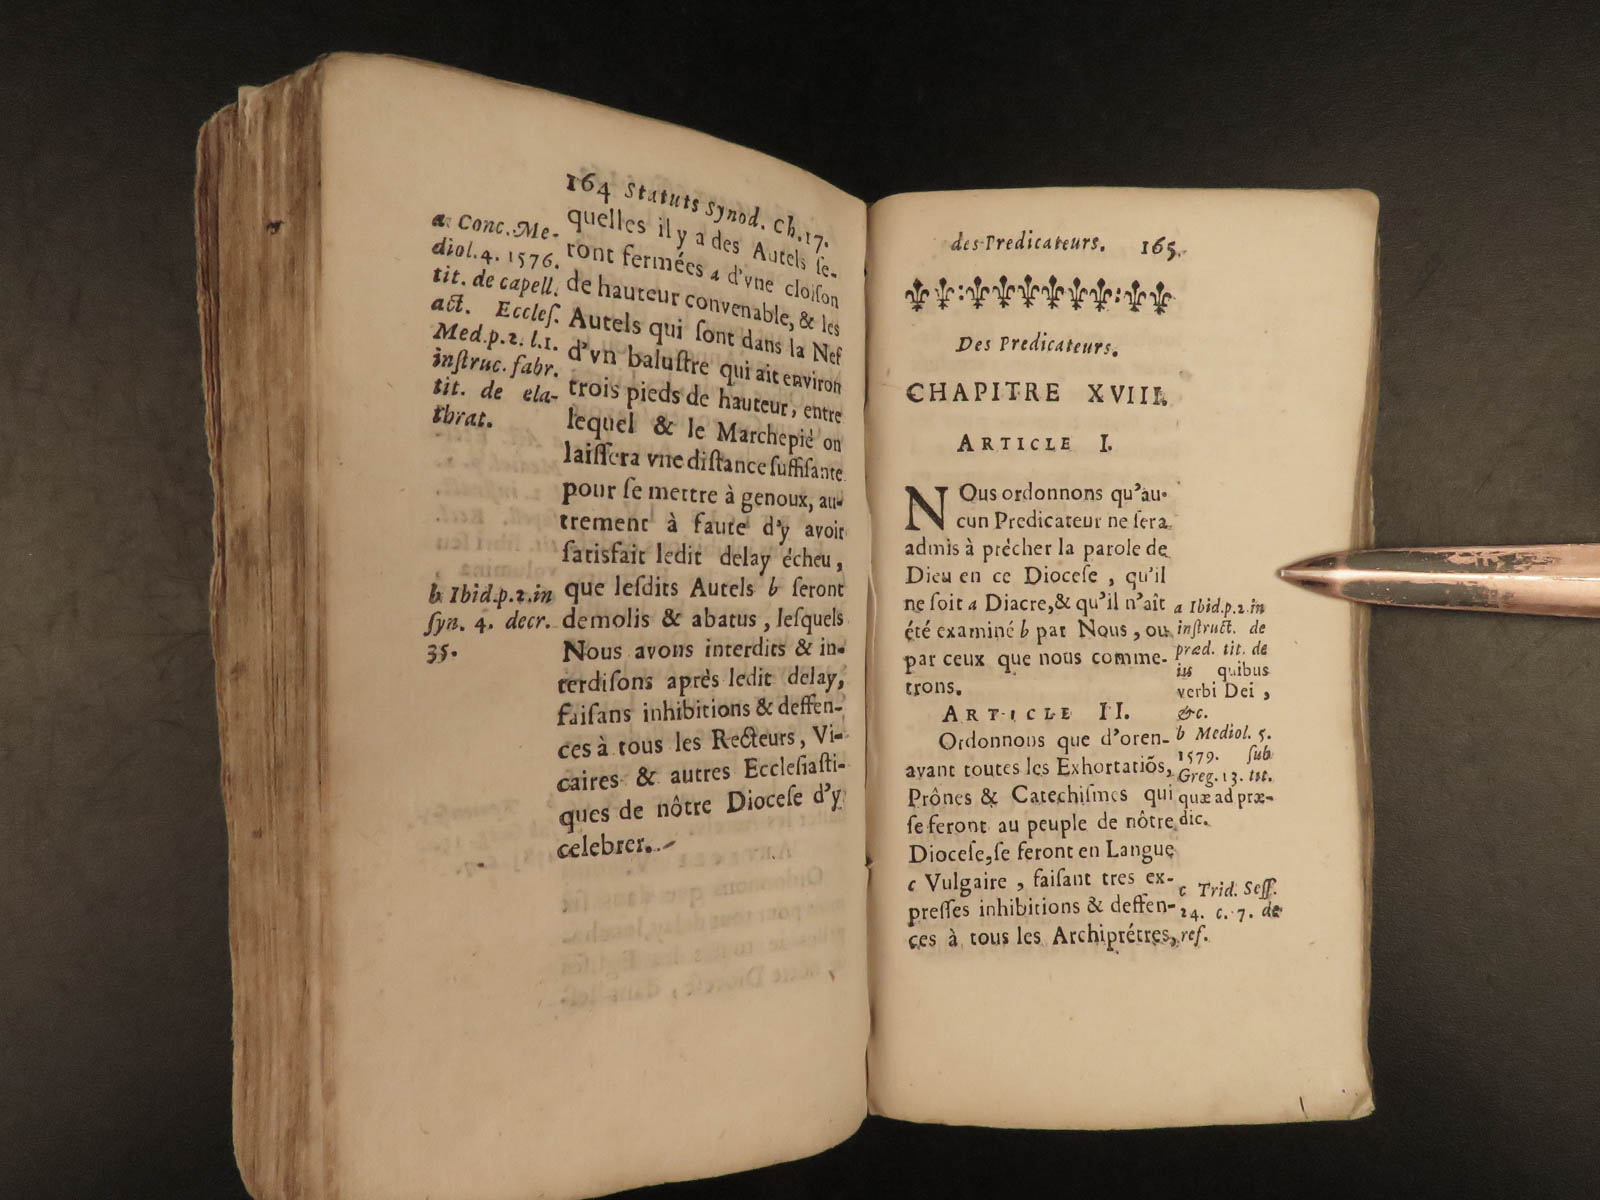 164 Statuts Synod. Ch. 17.
quelles il y a des Autels ſe-
ront fermées a d'vne cloiſon
de hauteur convenable, & les
Autels qui ſont dans la Nef
d'vn baluſtre qui ait environ
trois pieds de hauteur, entre
lequel & le Marchepié on
laiſſera vne diſtance ſuffiſante
pour ſe mettre à genoux, au-
trement à faute d'y avoir
ſatisfait ledit delay écheu,
que leſdits Autels b ſeront
demolis & abatus, leſquels
Nous avons interdits & in-
terdiſons après ledit delay,
faiſans inhibitions & deffen-
ces à tous les Recteurs, Vi-
caires & autres Eccleſiaſti-
ques de nôtre Dioceſe d'y
celebrer.
a Conc. Me-
diol. 4. 1576.
tit. de capell.
act. Eccleſ.
Med. p. 2. l. 1.
inſtruc. fabr.
tit. de ela-
thrat.
b Ibid. p. 2. in
ſyn. 4. decr.
35.
des Predicateurs. 165.
Des Predicateurs.
CHAPITRE XVIII.
ARTICLE I.
NOus ordonnons qu'au-
cun Predicateur ne ſera
admis à précher la parole de
Dieu en ce Dioceſe, qu'il
ne ſoit a Diacre, & qu'il n'aît
été examiné b par Nous, ou
par ceux que nous comme-
trons.
ARTICLE II.
Ordonnons que d'oren-
avant toutes les Exhortatiõs,
Prônes & Catechiſmes qui
ſe feront au peuple de nôtre
Dioceſe, ſe feront en Langue
c Vulgaire, faiſant tres ex-
preſſes inhibitions & deffen-
ces à tous les Archiprétres,
a Ibid. p. 2. in
inſtruct. de
præd. tit. de
iis quibus
verbi Dei,
&c.
b Mediol. 5.
1579. ſub
Greg. 13. tit.
quæ ad præ-
dic.
c Trid. Seſſ.
24. c. 7. de
ref.